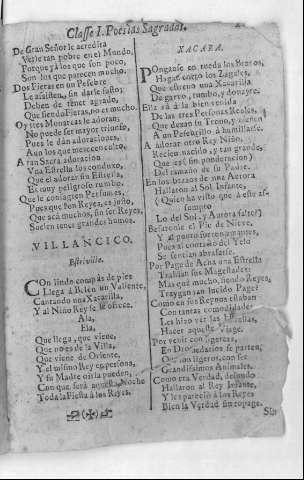 Classe I. Poesias Sagradas.
De Gran Señor le acredita
Verle tan pobre en el Mundo,
Porque ya los que son poco,
Son los que parecen mucho.
Dos Fieras en un Pesebre
Le asisten, sin darle susto;
Deben de tener agrado,
Que siendo Fieras, no es mucho.
Oy tres Monarcas le adoran;
No puede ser mayor triunfo,
Pues le dan adoraciones,
Aun los que
A tan Sacra adoracion
Vna Estrella los conduxo,
Que el adorar sin Estrella,
Es muy peligroso rumbo.
Que le consagren Personas,
Pues que son Reyes, es justo,
Que acá muchos, sin ser Reyes,
Suelen tener grandes humos.
VILLANCICO.
Estrivillo.
Con lindo compàs de pies
Llega à Belèn un Valiente,
Cantando una Xacarilla,
Y al Niño Rey se le ofrece.
Ala,
Ela,
Que llega, que viene,
Que no es de la Villa,
Que viene de Oriente,
Y el mismo Rey en persona,
Y su Madre oirla pueden,
Con que serà aquesta Noche
Toda la Fiesta à los Reyes.
XACARA.
Ponganse en rueda los Bueyos,
Hagan corro los Zagales,
Que estreno una Xacarilla
De garvo, rumbo, y donayre.
Ella và à la bien venida
De las tres Personas Reales,
Que dexan su Trono, y vienen
A un Pesebrillo à humillarse.
A adorar otro Rey Niño,
Recien nacido, y tan grande,
Que es (sin ponderacion)
Del tamaño de su Padre.
En los brazos de una Aurora
Hallaron al Sol Infante,
(Quien ha visto que à este assumpto
Lo del Sol, y Aurora falte?)
Besaronle el Pie de Nieve,
Y al punto
Pues al contacto del Yelo
Se sentian abrasarse.
Por Page de Acha una Estrella
Trahian sus Magestades:
Mas què mucho, siendo Reyes,
Traygan tan lucido Page?
Como en sus Reynos estaban
Con tantas comodidades
Les hizo ver las Estrellas,
Hacer aqueste Viage.
Por venir con ligereza,
En Dromedarios se parten,
Que son ligeros, con ser
Grandissimos Animales.
Como era Verdad, desnudo
Hallaron al Rey Infante,
Y les pareciò à los Reyes
Bien la Verdad sin ropage.
Sin